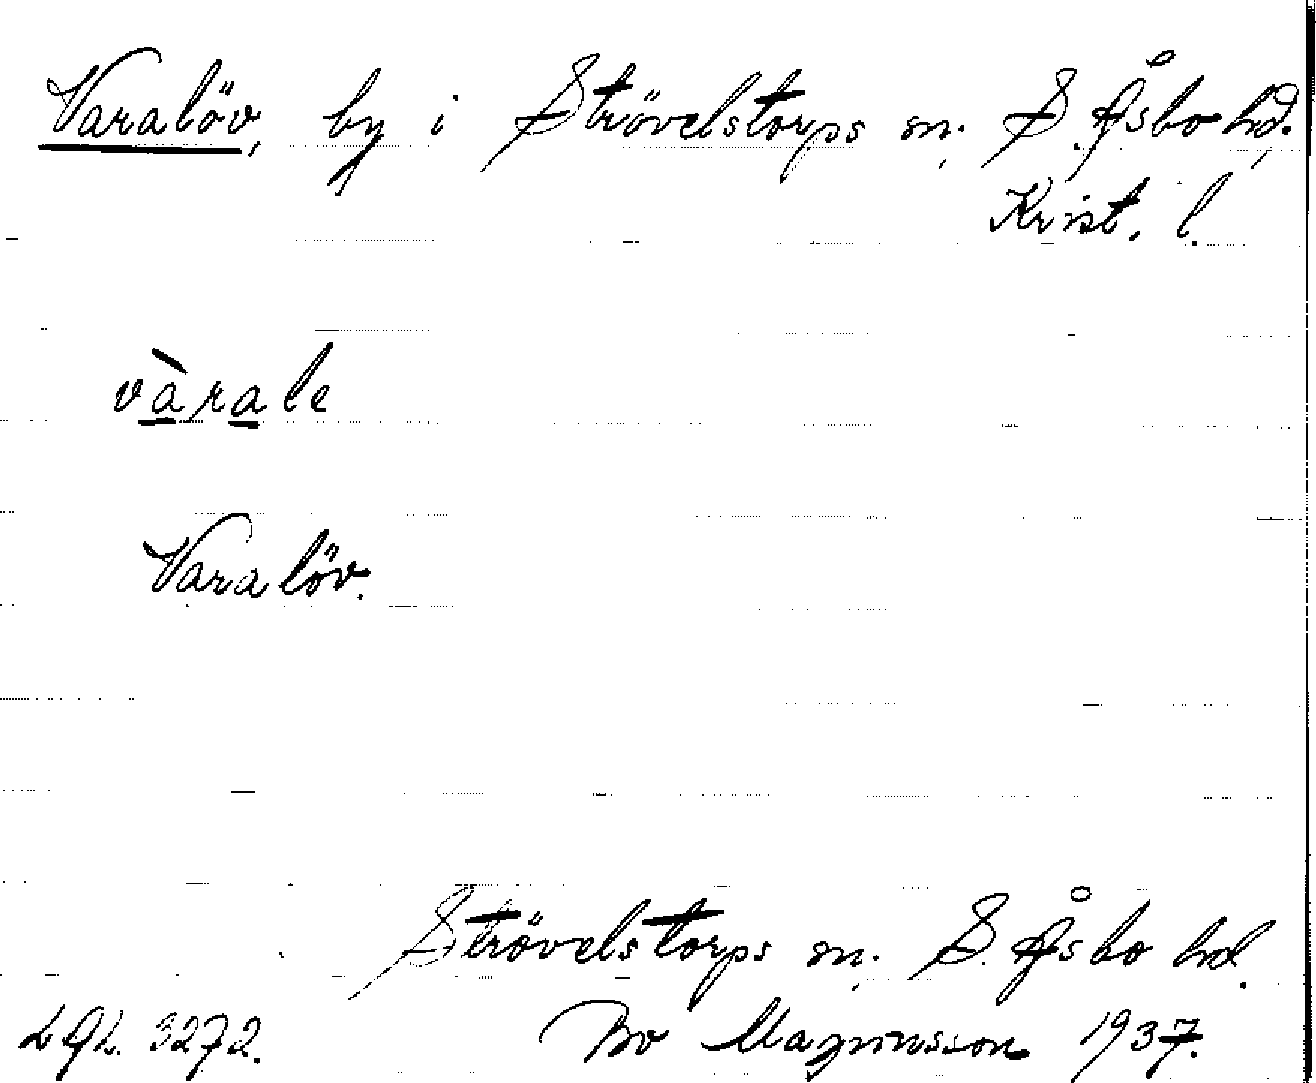 Varalöv, by i Strövelstorps sn. S. Åsbo hd.
Krist. l.
vàrale
Varalöv.
Strövelstorps sn. S. Åsbo hd.
3272. Bo Magnusson 1937.